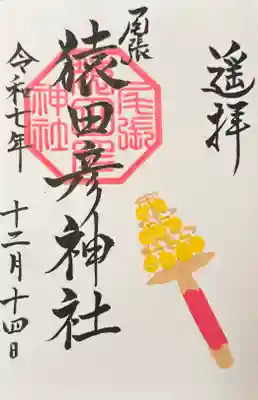 遥拝
尾張
猿田彦神社
令和七年 十二月十四日
尾張
猿田彦
神社